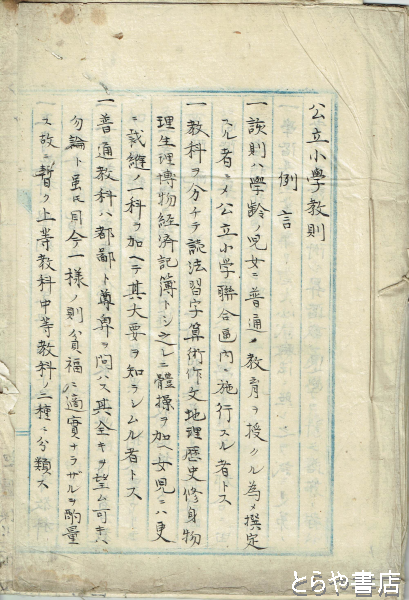 公立小學教則
例言
一該則ハ學齢ノ児女ニ普通ノ教育ヲ授クル為メ撰定
スル者ニメ公立小學聯合區内ニ施行スル者トス
一教科ヲ分チテ読法習字算術作文地理歴史修身物
理生理博物経済記簿トシ之レニ體操ヲ加ヘ女児ニハ更
ニ裁縫ノ一科ヲ加ヘテ其大要ヲ知ラシムル者トス
一普通教科ハ都鄙ト尊卑ヲ問ハス其全キヲ望ム可キハ
勿論ト虽氏目今一様ノ則貧福ニ適實ナラザルヲ酌量
ス故ニ暫ク上等教科中等教科ノ二種ニ分類ス
とらや書店